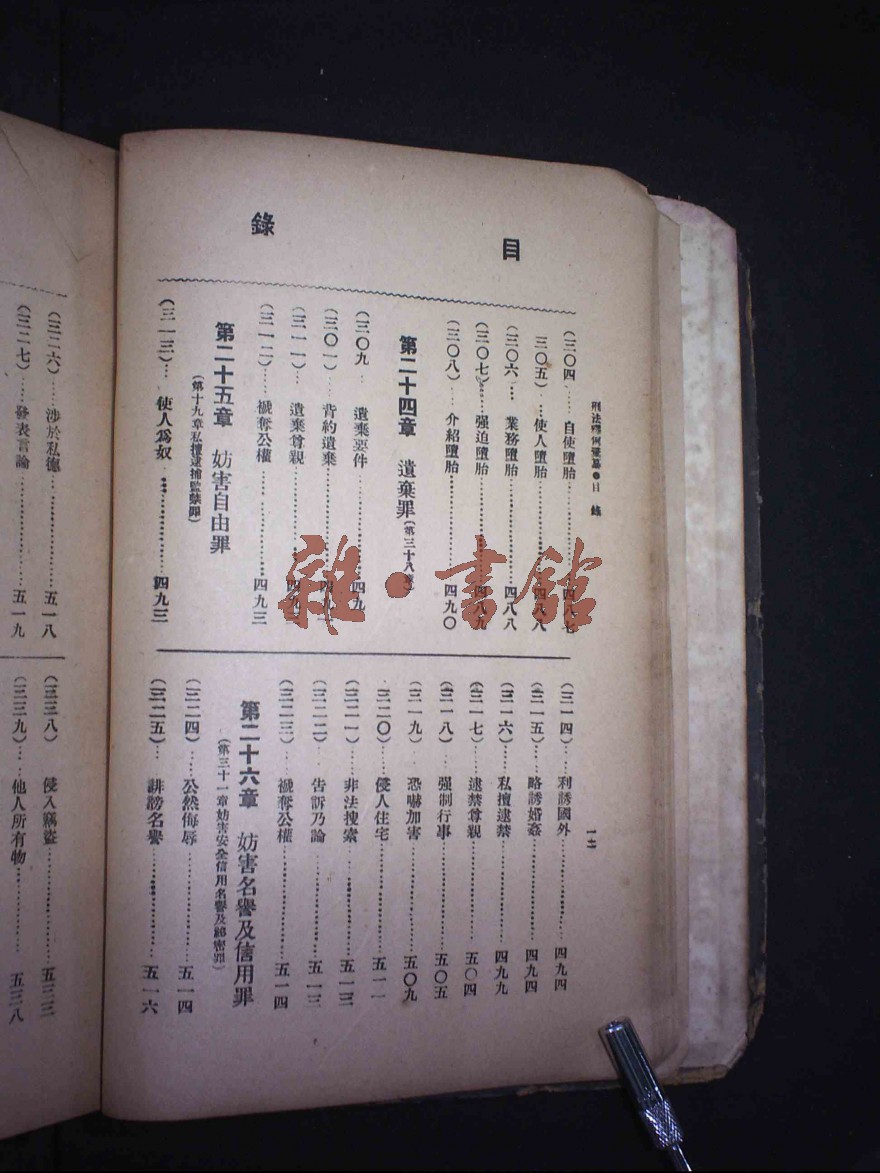 目錄
刑法釋例彙纂●目錄
(三〇四……自使墮胎……四八七
三〇五)……使人墮胎……四八八
(三〇六……業務墮胎……四八八
(三〇七)……强迫墮胎……四八九
(三〇八)……介紹墮胎……四九〇
第二十四章 遺棄罪(第三十八章)
(三〇九……遺棄要件……四九
(三〇一)……背約遺棄……四九
(三一一)……遺棄尊親……四九二
(三一二)……褫奪公權……四九三
第二十五章 妨害自由罪
(第十九章私擅逮捕監禁罪)
(三一三)……使人爲奴……四九三
(三一四)……利誘國外……四九四
(三一五)……略誘婚姦……四九四
(三一六)……私擅逮禁……四九九
(三一七)……逮禁尊親……五〇四
(三一八)……强制行事……五〇五
(三一九)……恐嚇加害……五〇九
三二〇)……侵人住宅……五一一
(三二一)……非法搜索……五一三
(三二二)……告訴乃論……五一三
(三二三)……褫奪公權……五一四
第二十六章 妨害名譽及信用罪
(第三十一章妨害安全信用名譽及祕密罪)
(三二四)……公然侮辱……五一四
(三二五)……誹謗名譽……五一六
一二
(三二六)……涉於私德……五一八
(三二七)……發表言論……五一九
(三三八)……侵入竊盜……五三三
(三三九)……他人所有物……五三八
雜·書館